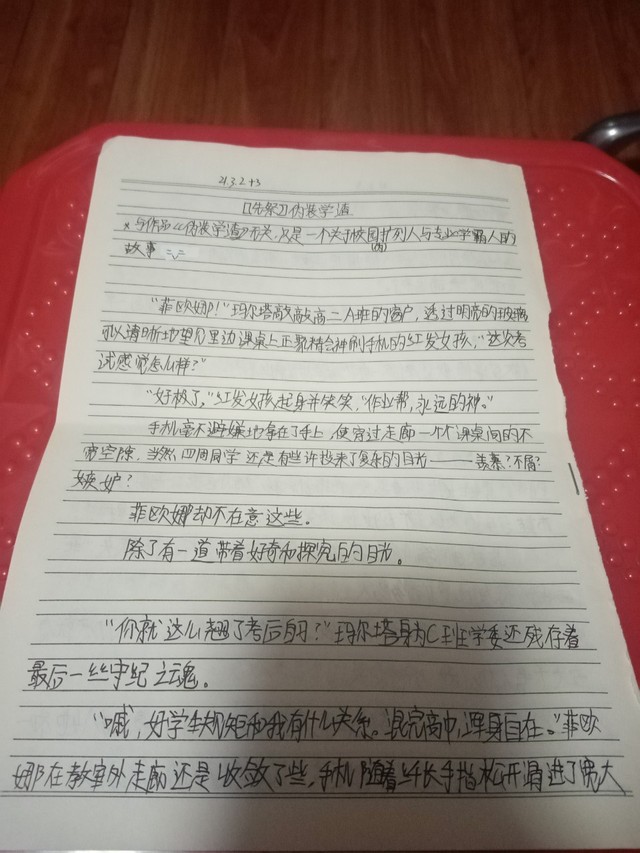 21.3.2 +3
【铁祭】伪装学渣
*与作品《伪装学渣》无关,又是一个关于校园扩列人与专业学霸人的
(内)
故事 =v=
“菲欧娜!”玛尔塔敲敲高二A班的窗户,透过明亮的玻璃
可以清晰地望见里边课桌上正聚精会神刷手机的红发女孩,“这次考
试感觉怎么样?”
“好极了,”红发女孩起身并笑笑,“作业帮,永远的神。”
手机毫不避嫌地拿在了手上,便穿过走廊一个个课桌间的不
宽空隙。当然四周同学还是有些许投来了复杂的目光——羡慕?不屑?
嫉妒?
菲欧娜却不在意这些。
除了有一道带着好奇和探究的目光。
“你就这么翘了考后自习?”玛尔塔身为C班学委还残存着
最后一丝守纪之魂。
“嘁,好学生规矩和我有什么关系。混完高中,浑身自在。”菲欧
娜在教室外走廊还是收敛了些,手机随着纤长手指松开滑进了宽大